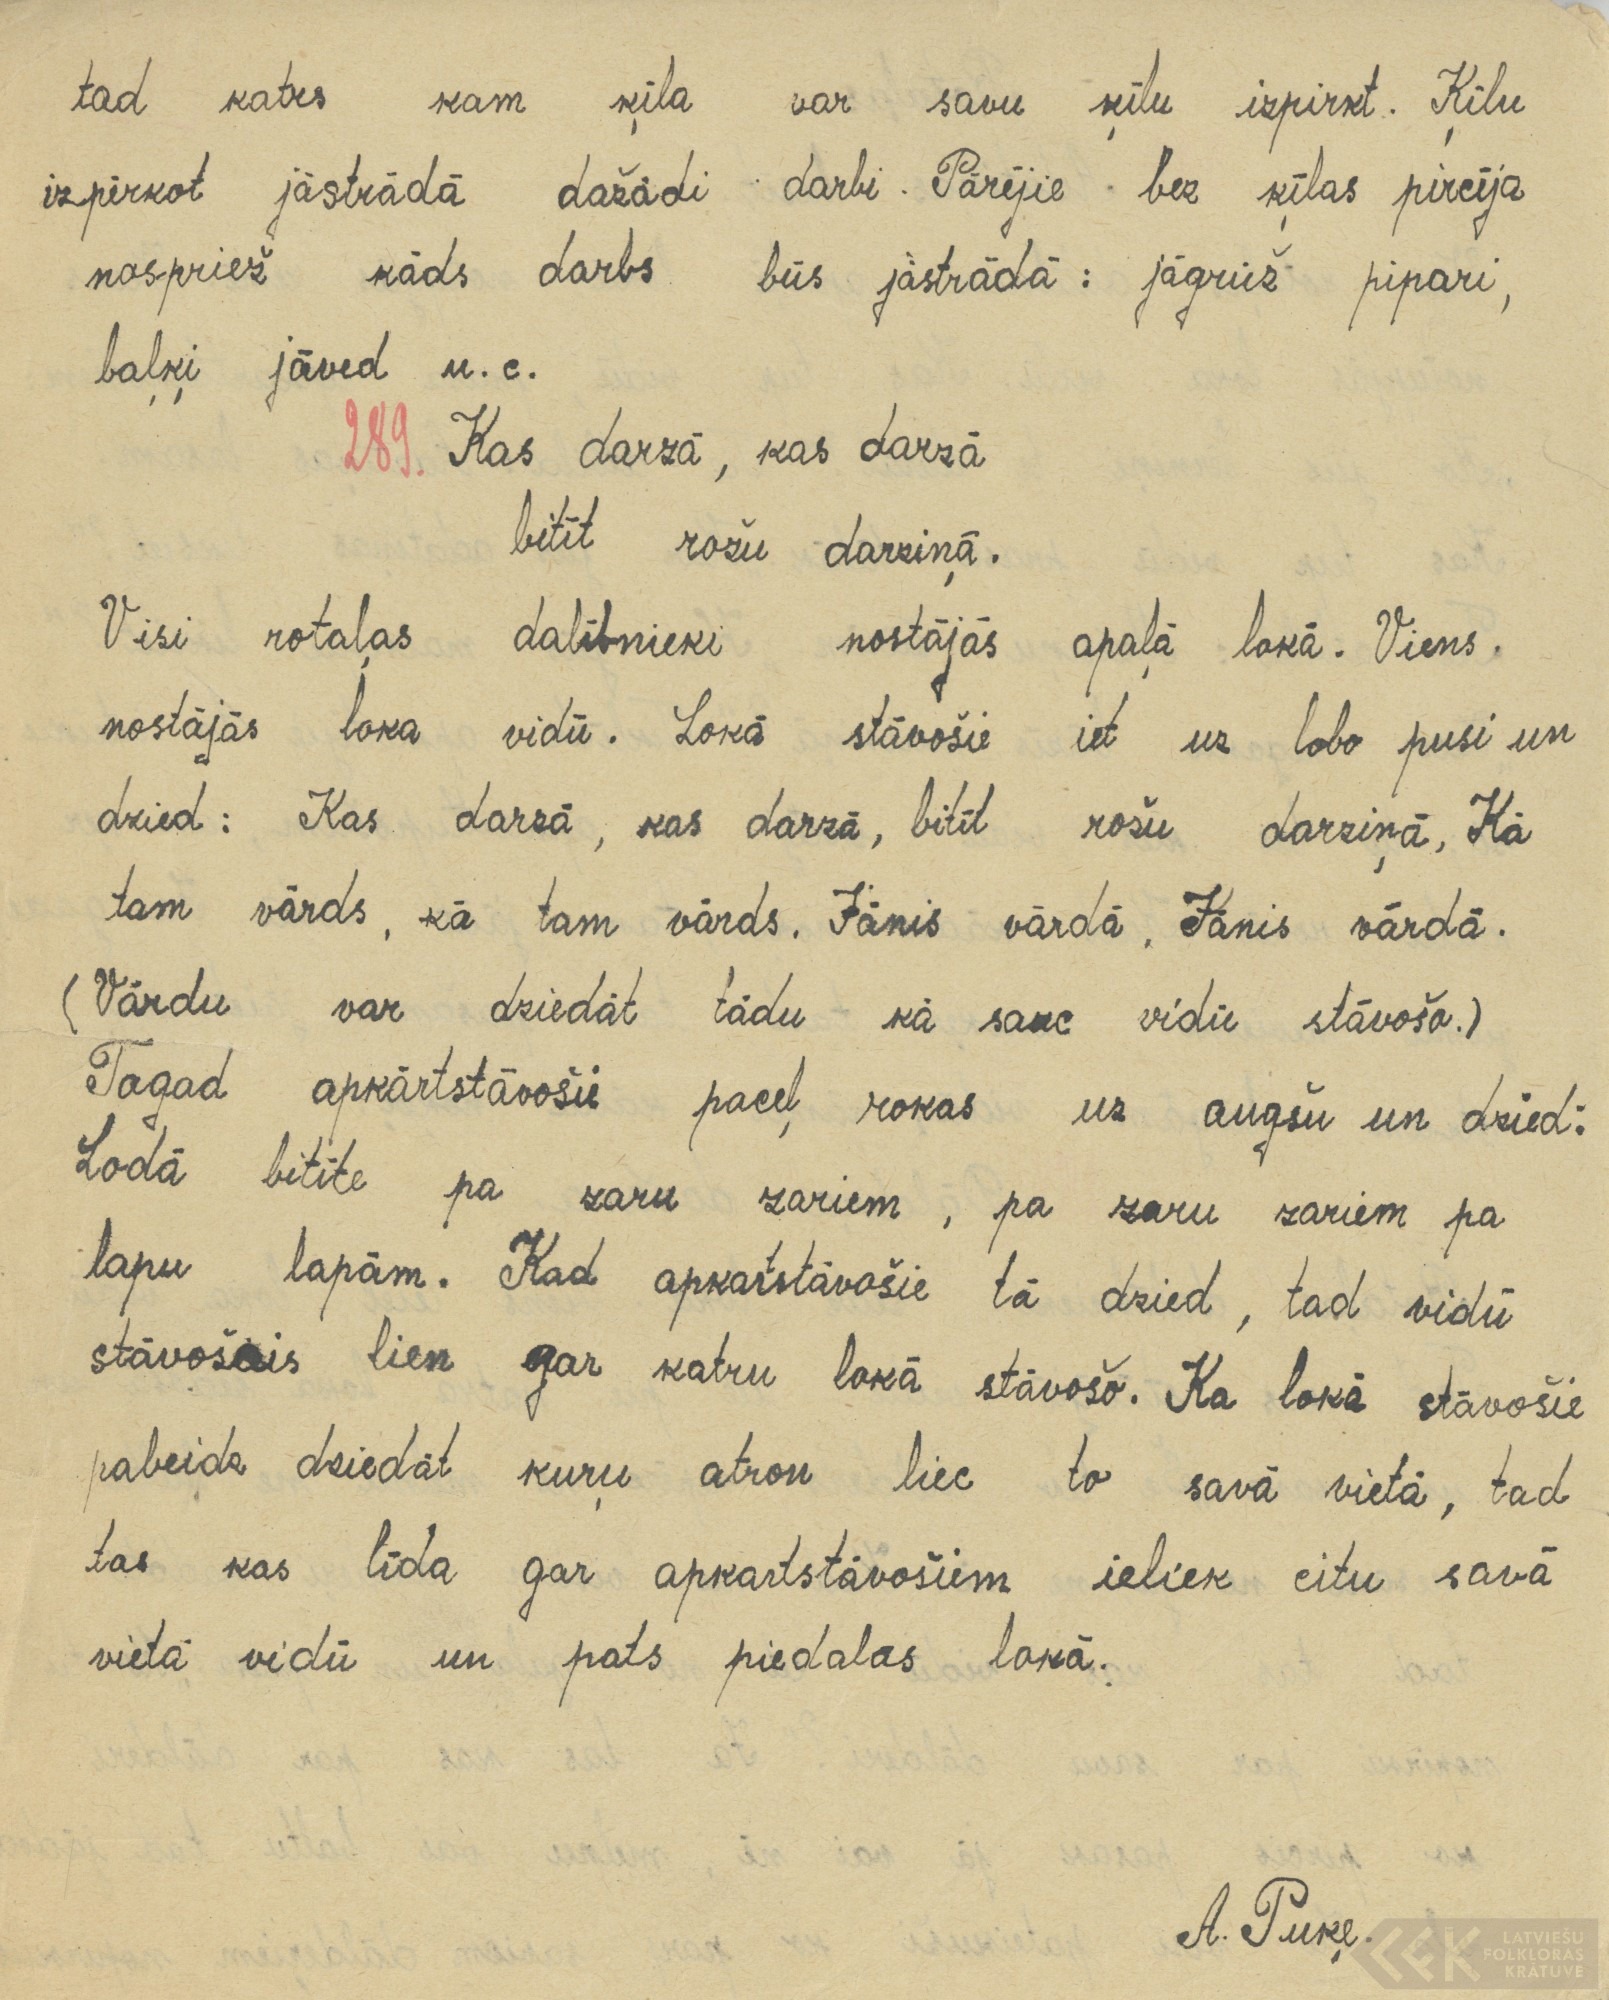 tad katrs kam ķīla var savu ķīlu izpirkt. Ķīlu
izpērkot jāstrādā dažādi darbi. Pārējie bez ķīlas pircēja
nospriež kāds darbs būs jāstrādā: jāgrūž pipari,
baļķi jāved u.c.
289. Kas darzā, kas darzā
bitīt rožu darziņā.
Visi rotaļas dalībnieki nostājās apaļā lokā. Viens.
nostājās loka vidū. Lokā stāvošie iet uz labo pusi un
dzied: Kas darzā, kas darzā, bitīt rošu darziņā, Kā
tam vārds, kā tam vārds. Jānis vārdā, Jānis vārdā.
(Vārdu var dziedāt tādu kā sauc vidū stāvošo.)
Tagad apkārtstāvošie paceļ rokas uz augšu un dzied:
Lodā bitīte pa zaru zariem, pa zaru zariem pa
lapu lapām. Kad apkartstāvošie tā dzied, tad vidū
stāvošais lien gar katru lokā stāvošo. Ka lokā stāvošie
pabeidz dziedāt kuŗu atron liec to savā vietā, tad
tas kas līda gar apkartstāvošiem ieliek citu savā
vietā vidū un pats piedalas lokā.
A. Puķe.
LATVIEŠU
FOLKLORAS
KRĀTUVE